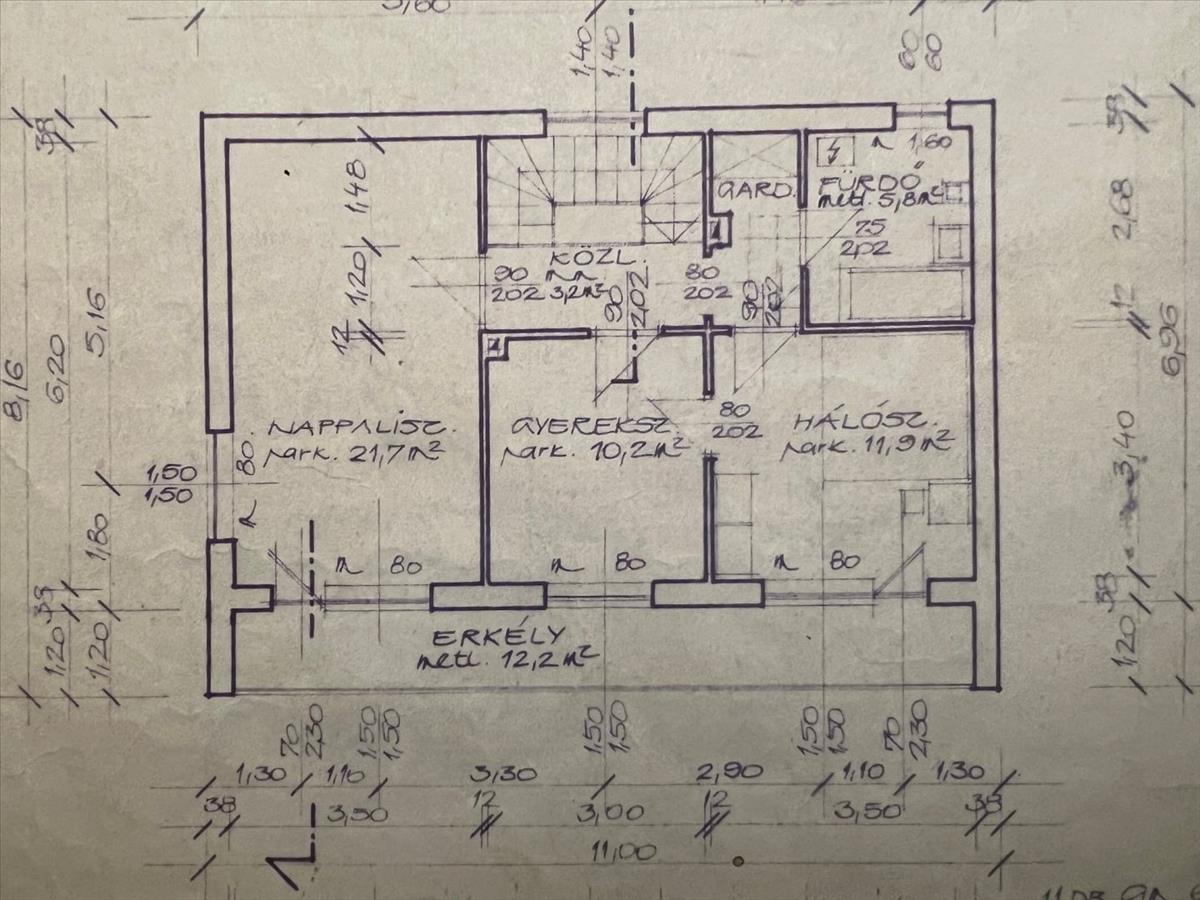 3,60
1,40
1,40
60
60
38
n 1,60
GARD.
FÜRDŐ
metl. 5,8m²
75
2,02
1,48
1,20
12
KÖZL.
3,2m²
90
202
90
2,02
80
202
90
202
38
2,68
12
3,40
38
1,20
6,96
8,16
6,20
5,16
1,80
38
1,20
1,20
NAPPALISZ.
park. 21,7m²
GYEREKSZ.
park. 10,2m²
80
202
HÁLÓSZ.
park. 11,9m²
1,50
1,50
80
80
80
80
ERKÉLY
metl. 12,2m²
70
2,30
1,50
1,50
1,50
1,50
1,50
1,50
70
2,30
1,30 1,10 3,30 2,90 1,10 1,30
38 3,50 12 3,00 12 3,50 38
11,00